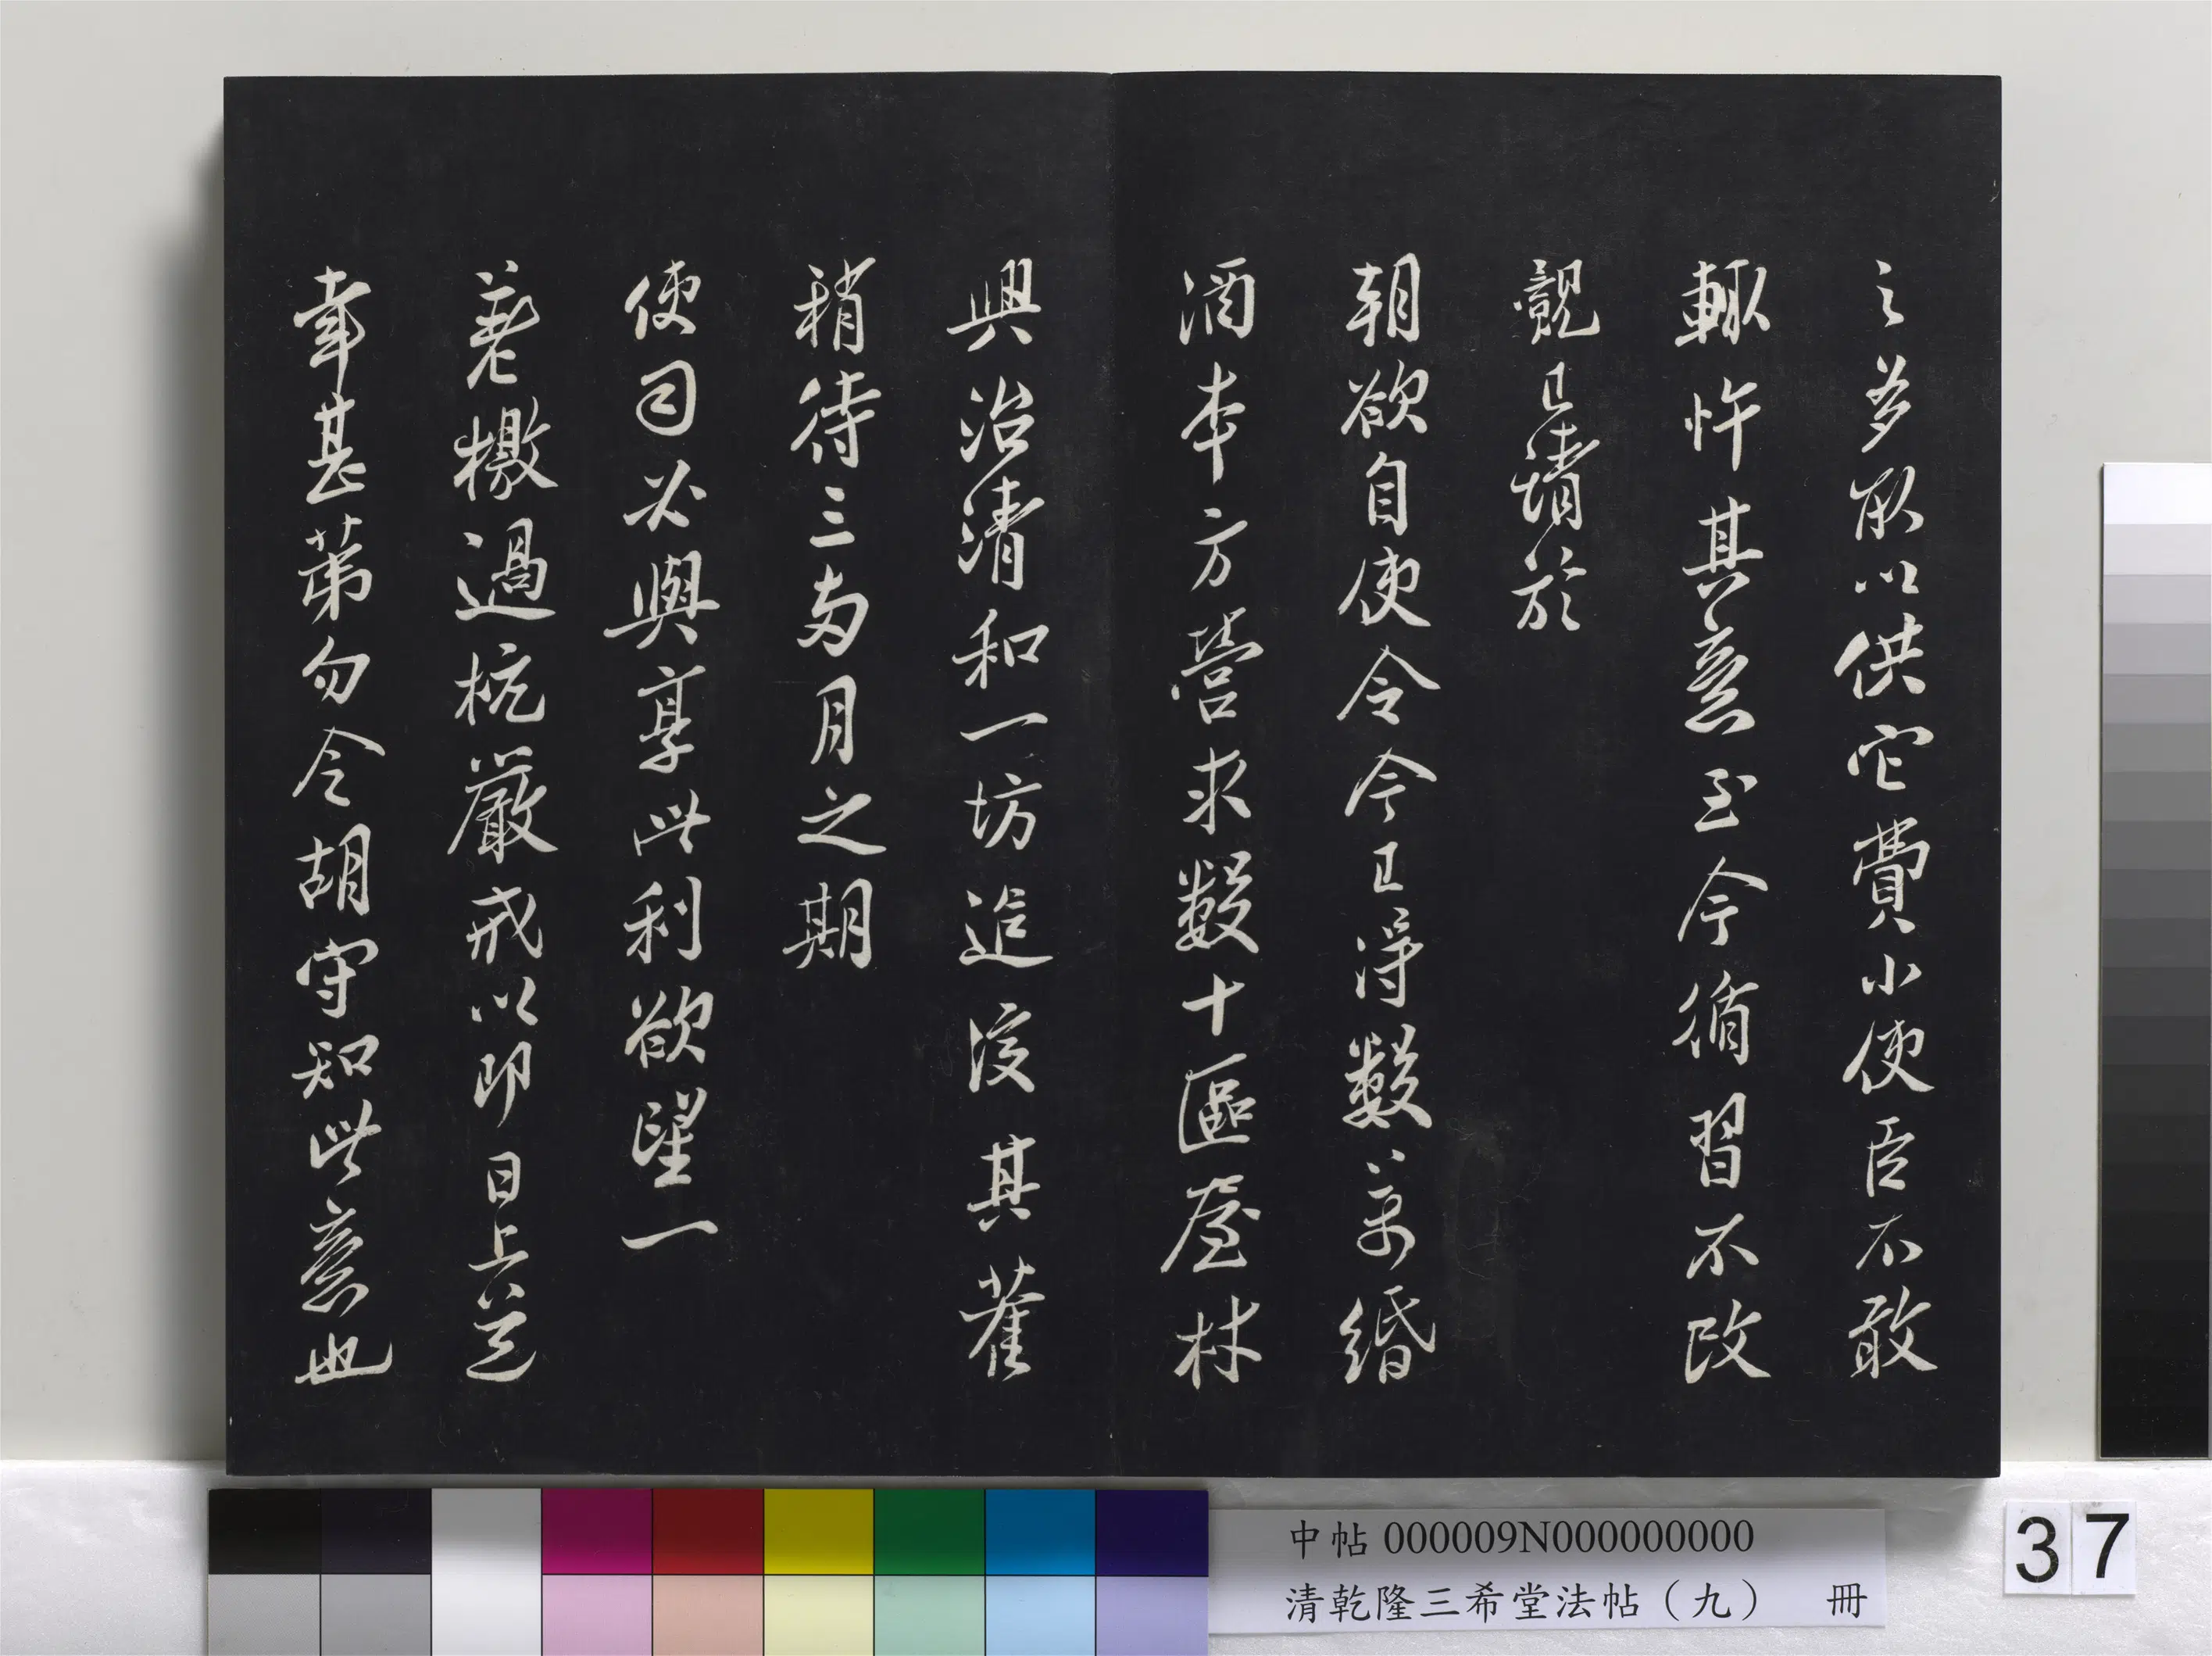 之多取以供它費小使臣不敢
輒忤其意至今循習不改
覬已請於
朝欲自使令今已得數萬緡
酒本方營求數十區屋材
興治清和一坊追復其舊
稍待三两月之期
使司必與享此利欲望一
檄過杭嚴戒以即日上道
幸甚第勿令胡守知此意也
中帖 000009N000000000
清乾隆三希堂法帖（九） 冊
37